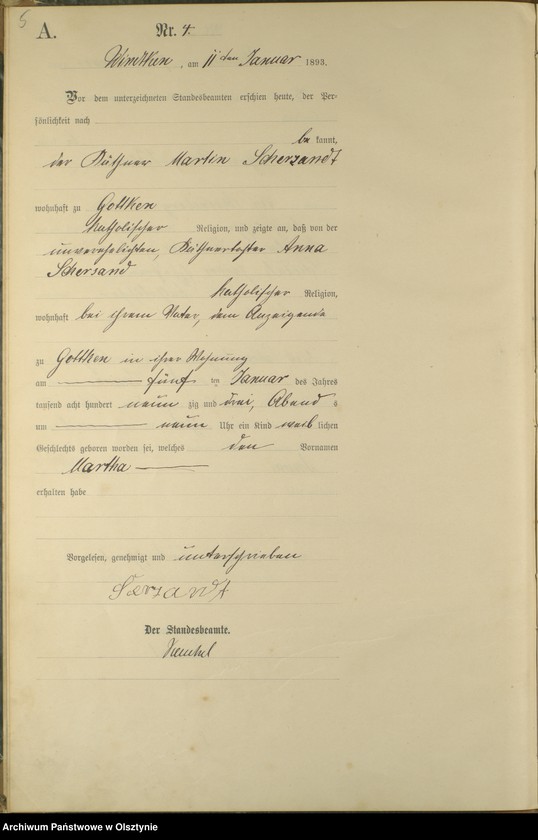 5
A. Nr. 4.
Windtken, am 11ten Januar 1893.
Vor dem unterzeichneten Standesbeamten erschien heute, der Per-
sönlichkeit nach
be kannt,
der Büdner Martin Scherzandt
wohnhaft zu Gottken
katholischer Religion, und zeigte an, daß von der
unverehelichten, Büdnertochter Anna
Schersand
katholischer Religion,
wohnhaft bei ihrem Vater, dem Anzeigende
zu Gottken in ihrer Wohnung
am fünf ten Januar des Jahres
tausend acht hundert neun zig und drei, Abend s
um neun Uhr ein Kind weib lichen
Geschlechts geboren worden sei, welches den Vornamen
Martha
erhalten habe
Vorgelesen, genehmigt und unterschrieben
Der Standesbeamte.
Archiwum Państwowe w Olsztynie